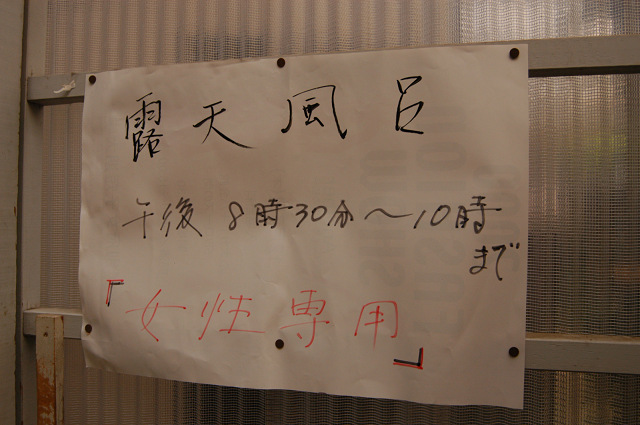 露天風呂
午後8時30分～10時
まで
『女性専用』